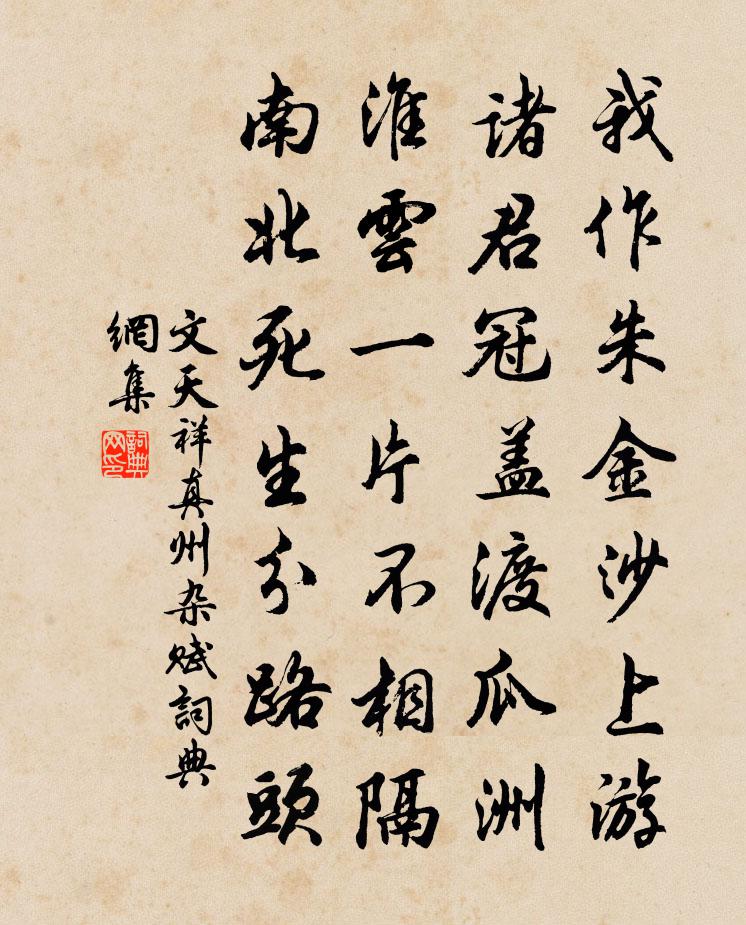 我作朱金沙上游
诸君冠盖渡瓜洲
淮雲一片不相隔
南北死生分路頭
文天祥真州杂赋詞典
網集
詞典网印